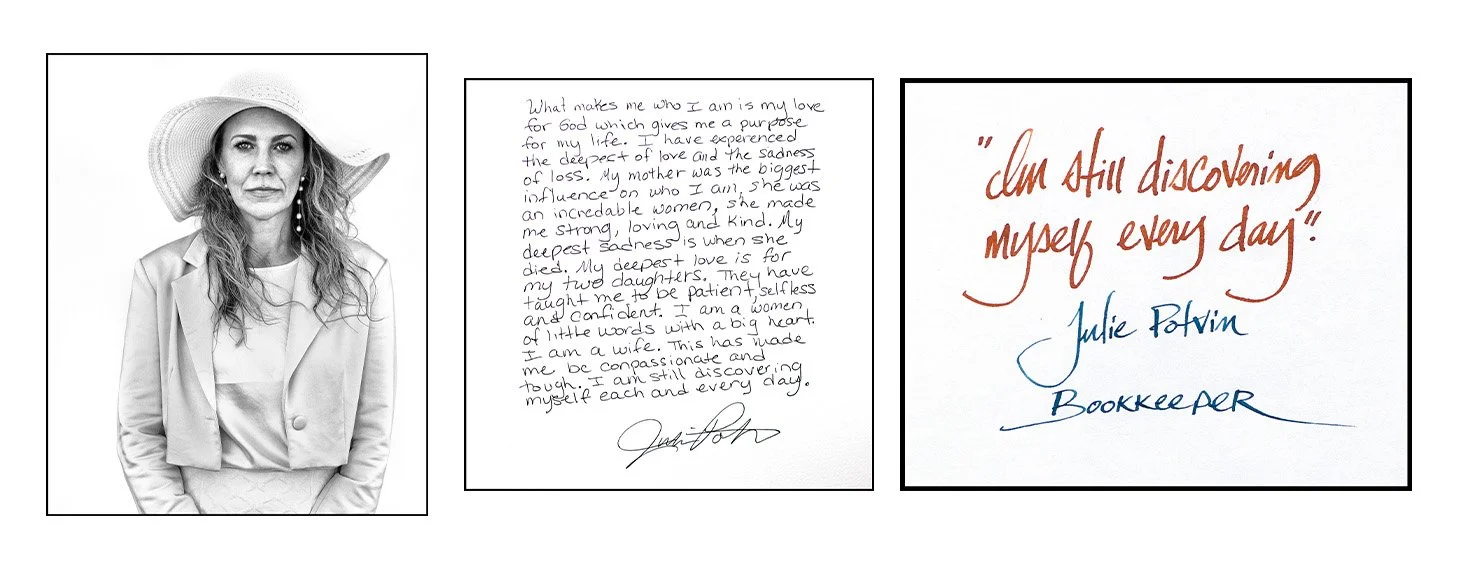 What makes me who I am is my love
for God which gives me a purpose
for my life. I have experenced
the deepest of love and the sadness
of loss. My mother was the biggest
influence on who I am, she was
an incredable women, she made
me strong, loving and kind. My
deepest sadness is when she
died. My deepest love is for
my two daughters. They have
taught me to be patient, selfless
and confident. I am a women
of little words with a big heart.
I am a wife. This has made
me be conpassionate and
tough. I am still discovering
myself each and every day.
"I'm still discovering
myself every day".
Julie Potvin
Bookkeeper